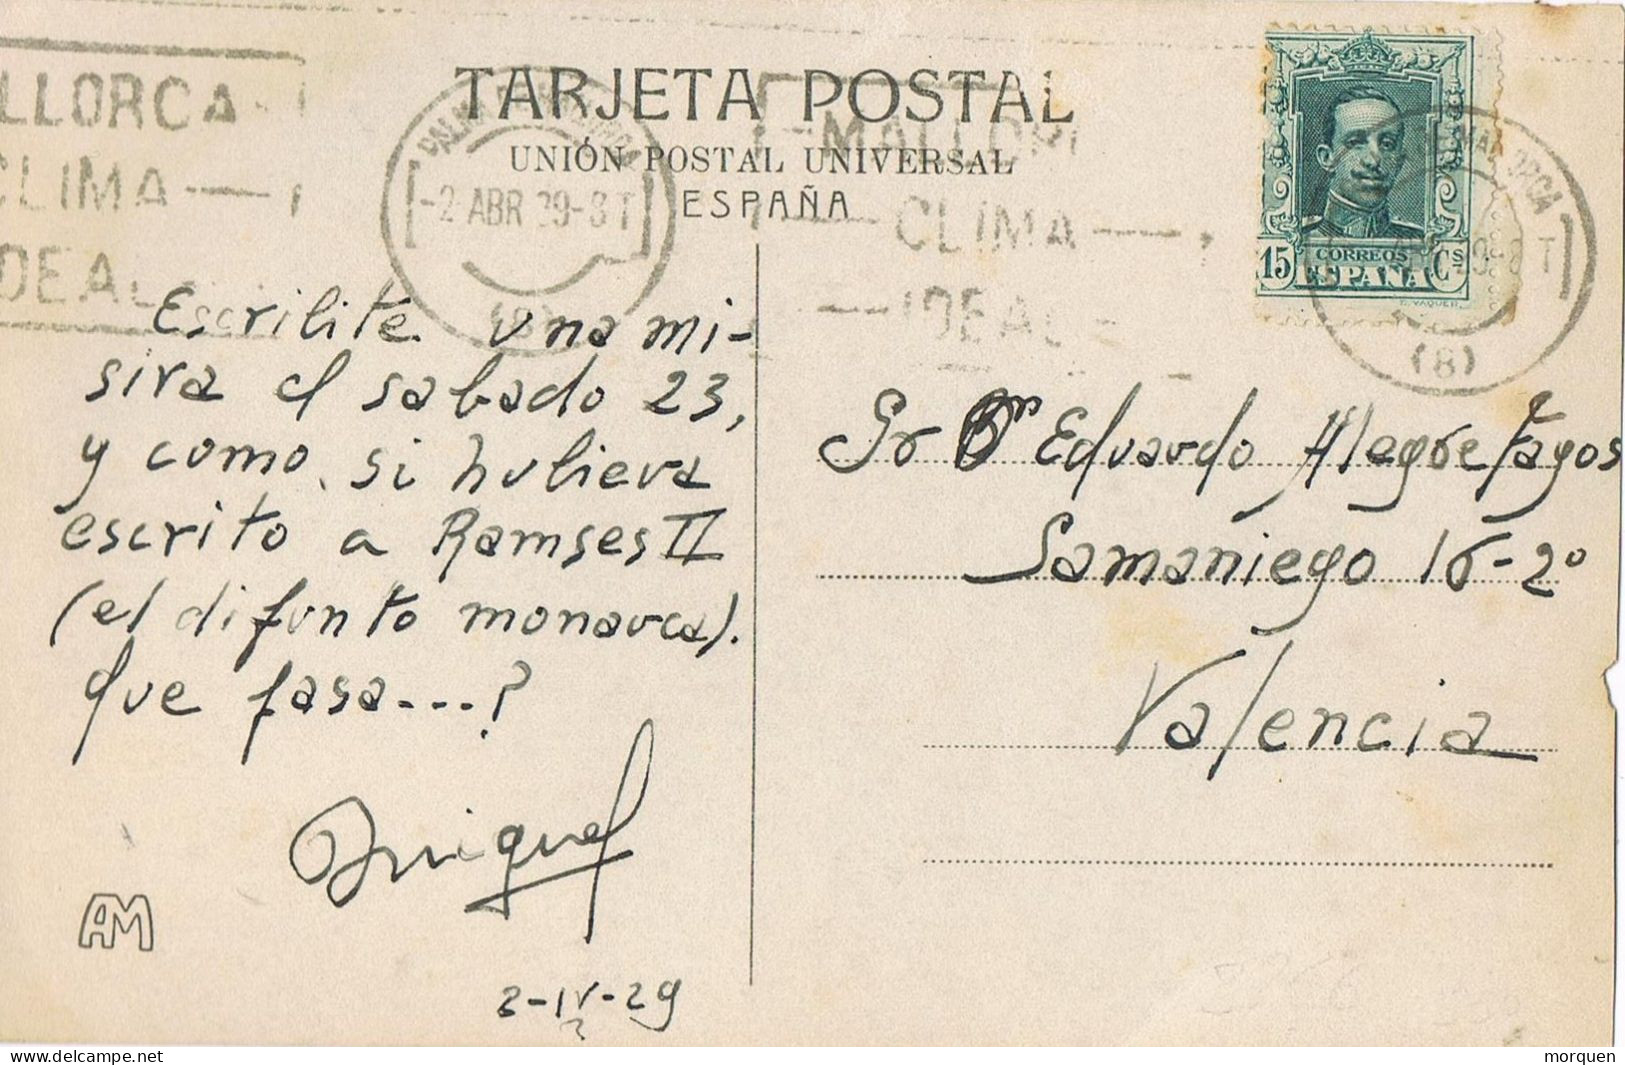 TARJETA POSTAL
UNIÓN POSTAL UNIVERSAL
ESPAÑA
LLORCA
CLIMA
IDEAL
PALMA DE MALLORCA
-2 ABR 29-8T
(8)
MALLOR
CLIMA
IDEAL
MALLORCA
(8)
15 CORREOS Cs
ESPAÑA
E. VAQUER.
Escribite una mi-
siva el sabado 23,
y como si hubieva
escrito a Ramses II
(el difunto monarca).
Que pasa....?
Miguel
2-IV-29
AM
Sr Dn Eduardo Alegre Fagos
Samaniego 16-2º
Valencia
morquen